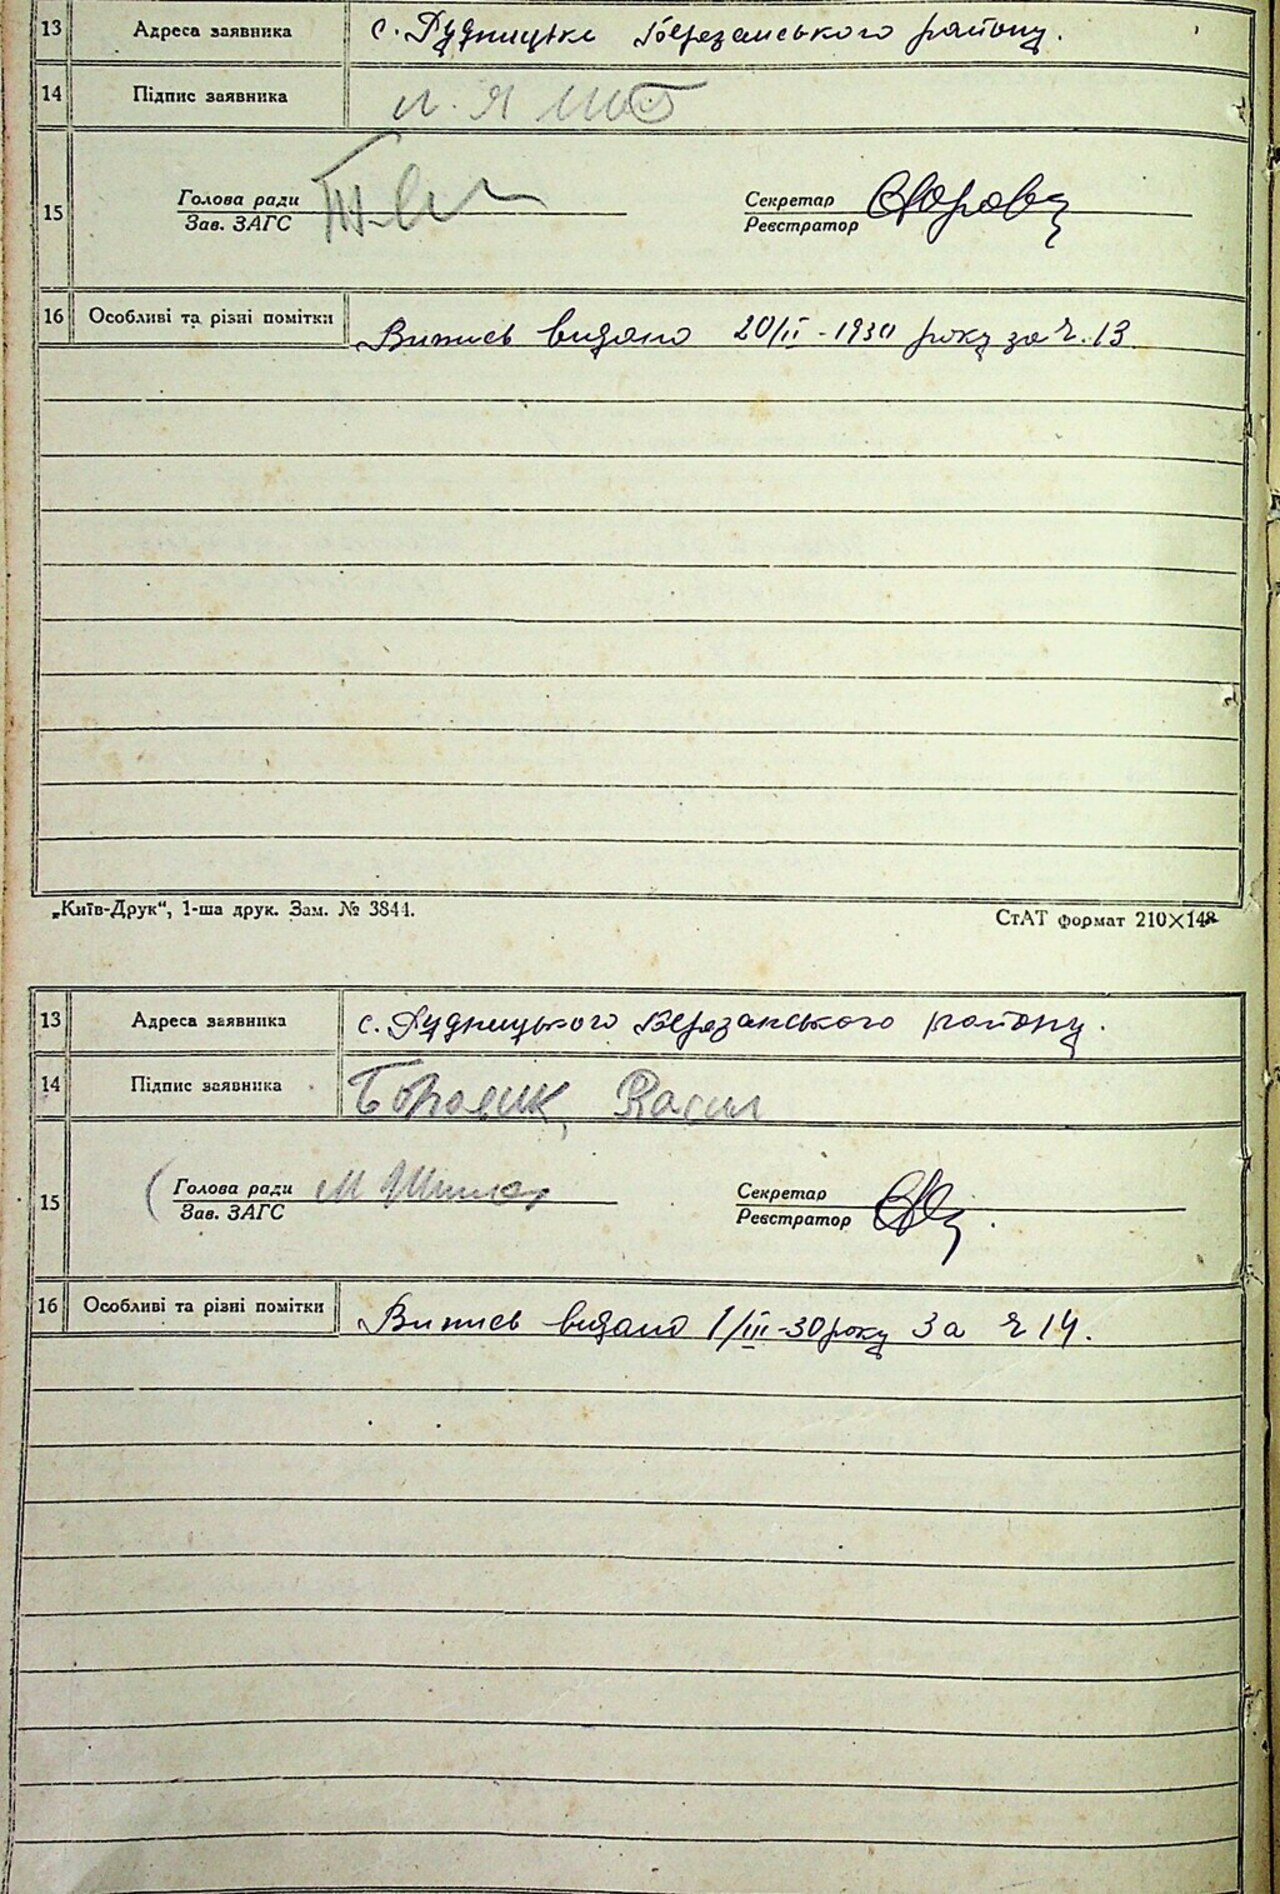 13 Адреса заявника с. Рудницьке Березанського району.
14 Підпис заявника
15 Голова ради Секретар
Зав. ЗАГС Реєстратор
16 Особливі та різні помітки Випись видано 20/II - 1930 року за ч. 13
„Київ-Друк“, 1-ша друк. Зам. № 3844. СтАТ формат 210×148
13 Адреса заявника с. Рудницького Березанського району.
14 Підпис заявника Василь
15 Голова ради Секретар
Зав. ЗАГС Реєстратор
16 Особливі та різні помітки Випись видано 1/III-30 року за ч 14.